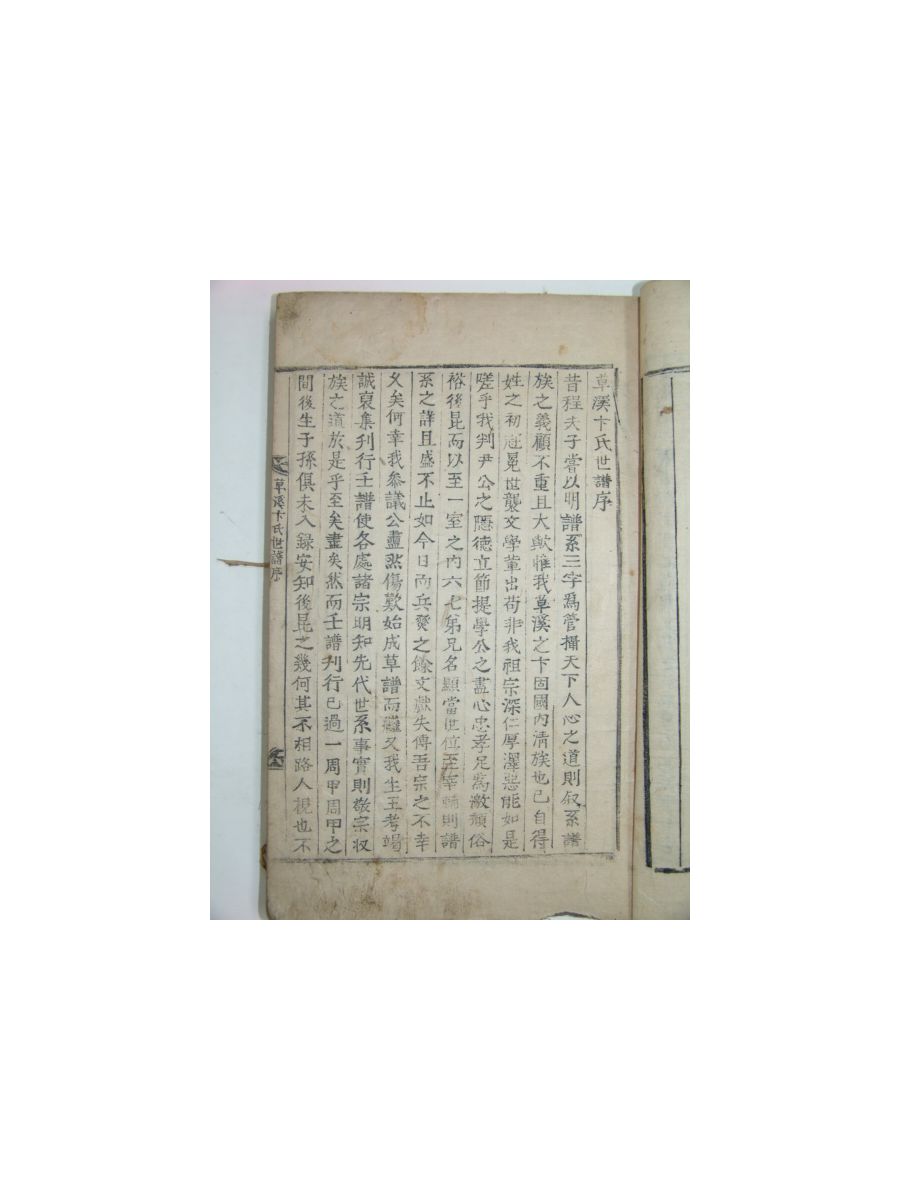 草溪卞氏世譜序
昔程夫子嘗以明譜系三字爲管攝天下人心之道則叙系譜
族之義顧不重且大歟惟我草溪之卞固國內淸族也已自得
姓之初冠冕世襲文學輩出苟非我祖宗深仁厚澤惡能如是
嗟乎我判尹公之隱德立節提學公之盡心忠孝足爲激頹俗
裕後昆而以至一室之內六七弟兄名顯當世位至宰輔則譜
系之詳且盛不止如今日而兵燹之餘文獻失傳吾宗之不幸
久矣何幸我參議公盡然傷歎始成草譜而繼又我生王考竭
誠裒集刊行壬譜使各處諸宗明知先代世系事實則敬宗收
族之道於是乎至矣盡矣然而壬譜刊行已過一周甲周甲之
間後生子孫俱未入録安知後昆之幾何其不相路人視也不
草溪卞氏世譜序